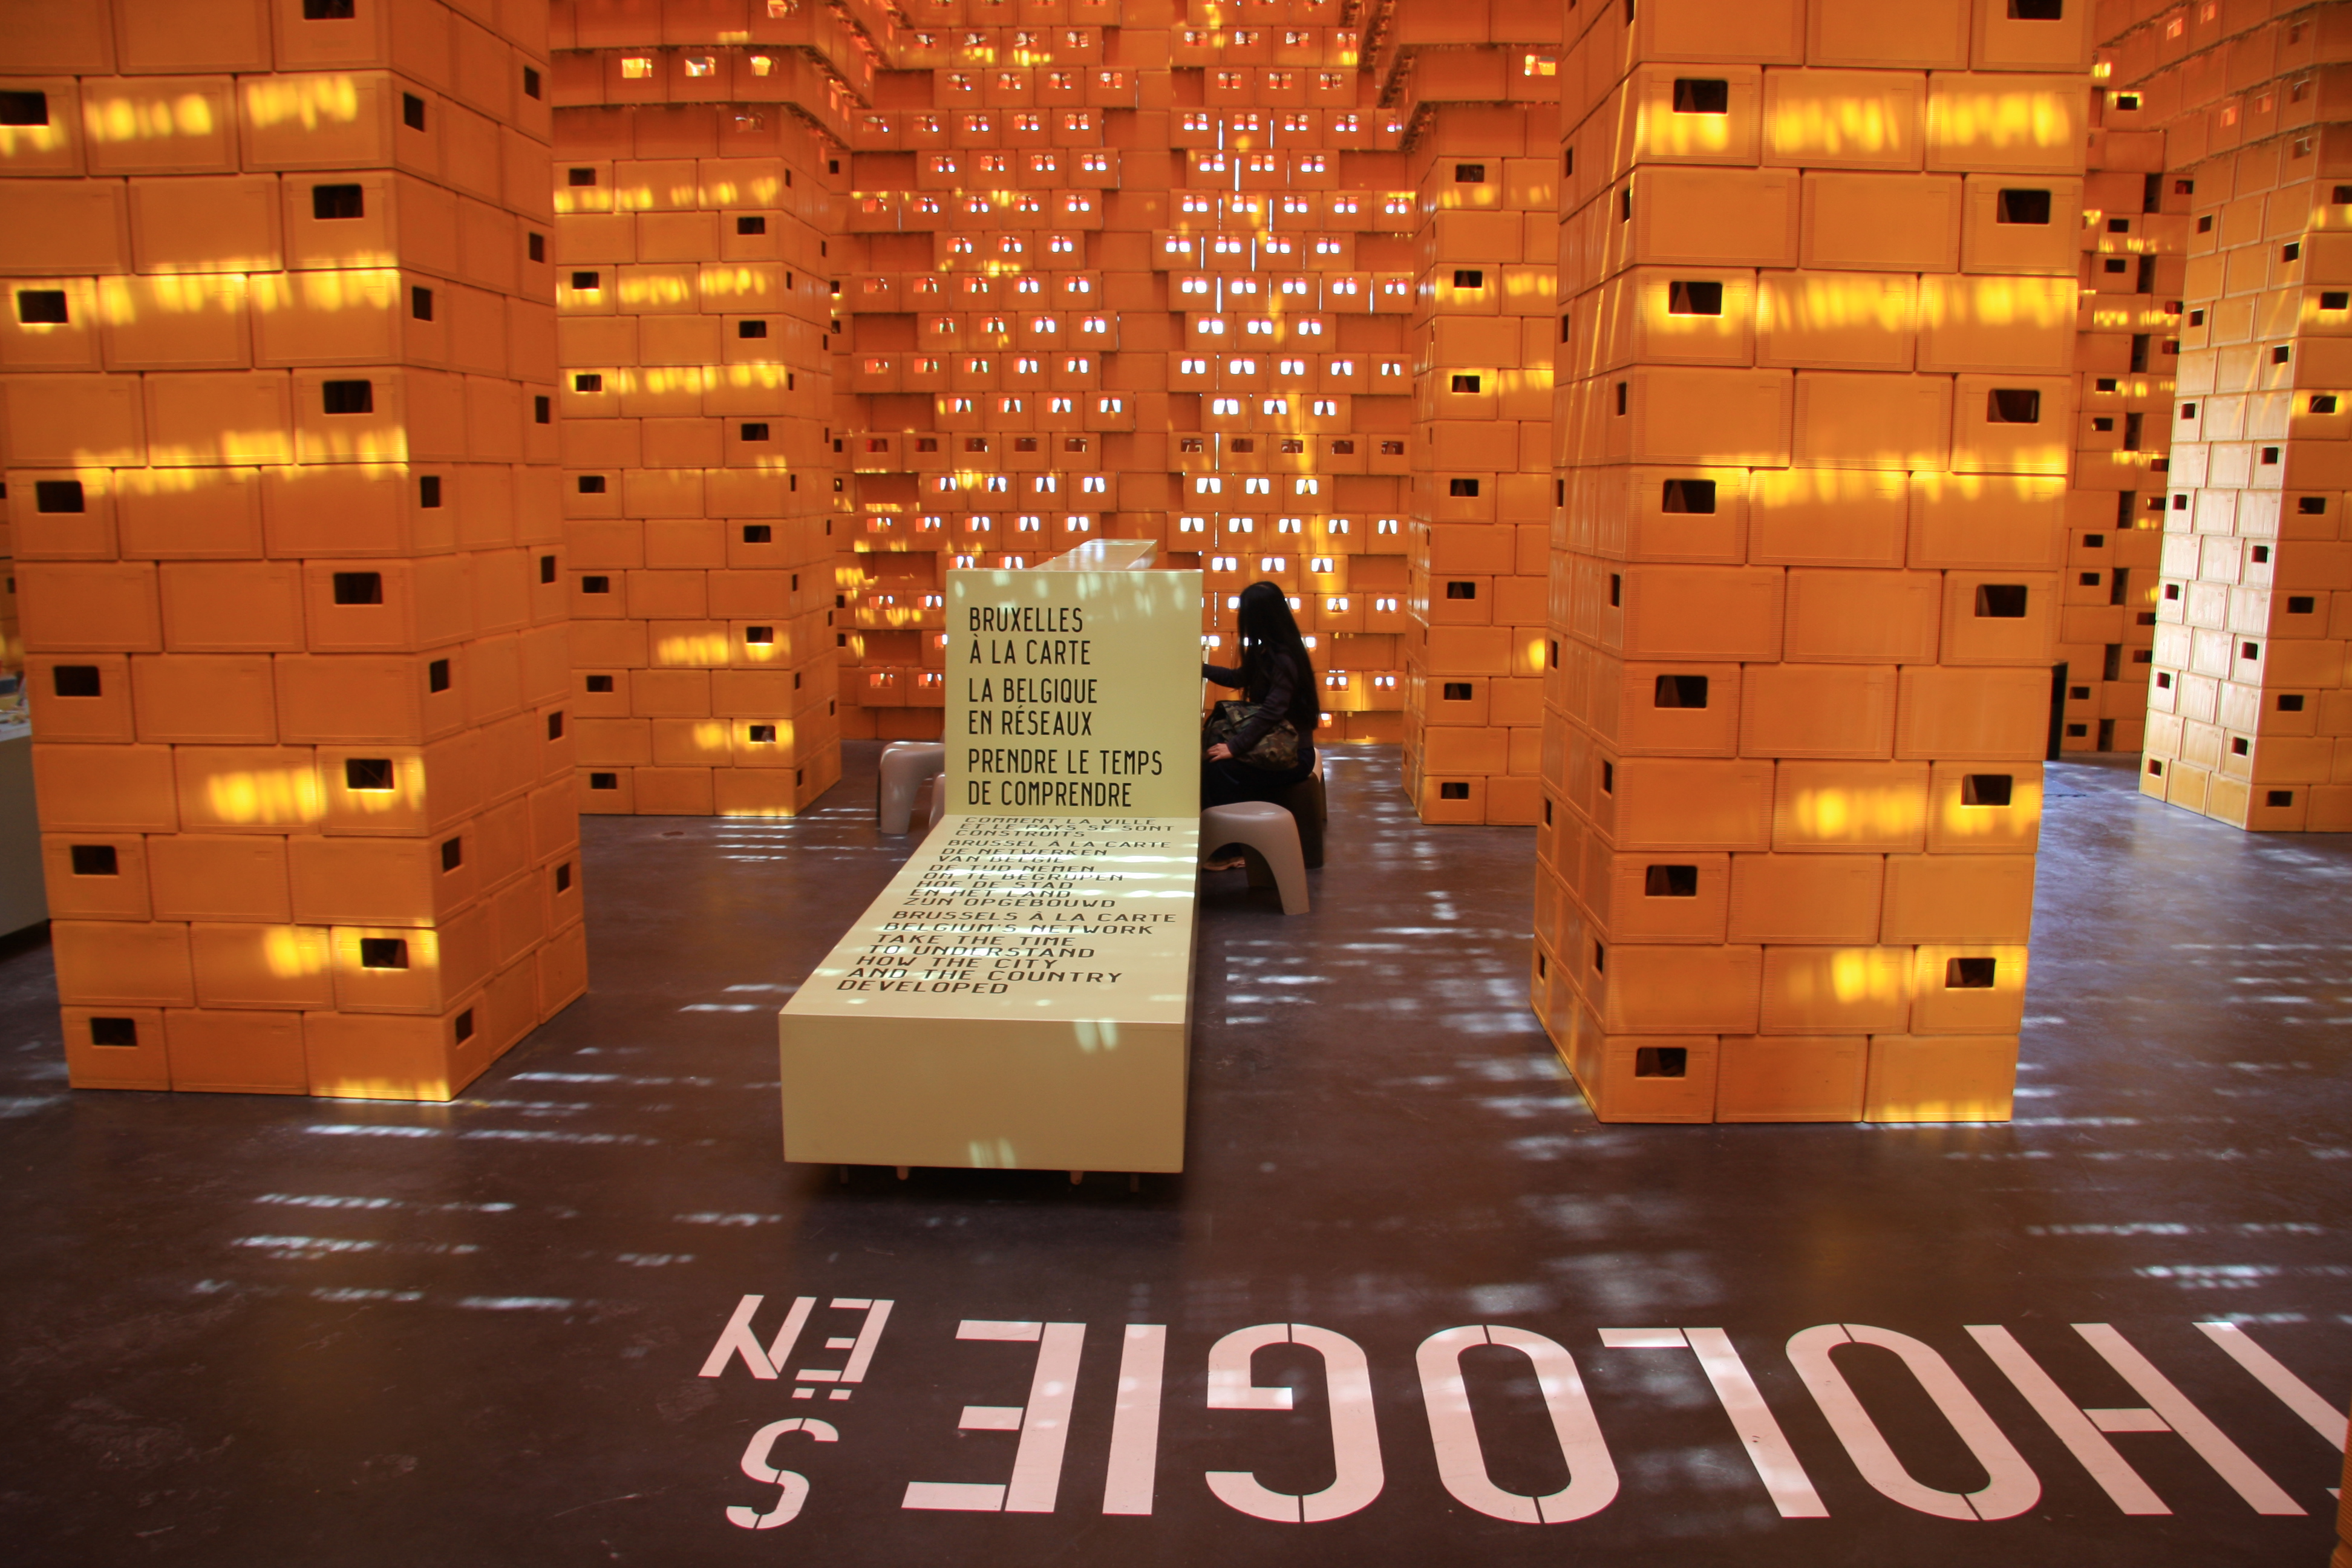 BRUXELLES
À LA CARTE
LA BELGIQUE
EN RÉSEAUX
PRENDRE LE TEMPS
DE COMPRENDRE
COMMENT LA VILLE
ET LE PAYS SE SONT
CONSTRUITS
BRUSSEL À LA CARTE
DE NETWERKEN
VAN BELGIË
DE TIJD NEMEN
OM TE BEGRIJPEN
HOE DE STAD
EN HET LAND
ZIJN OPGEBOUWD
BRUSSELS À LA CARTE
BELGIUM'S NETWORK
TAKE THE TIME
TO UNDERSTAND
HOW THE CITY
AND THE COUNTRY
DEVELOPED
HOLOGIE
S
ËN